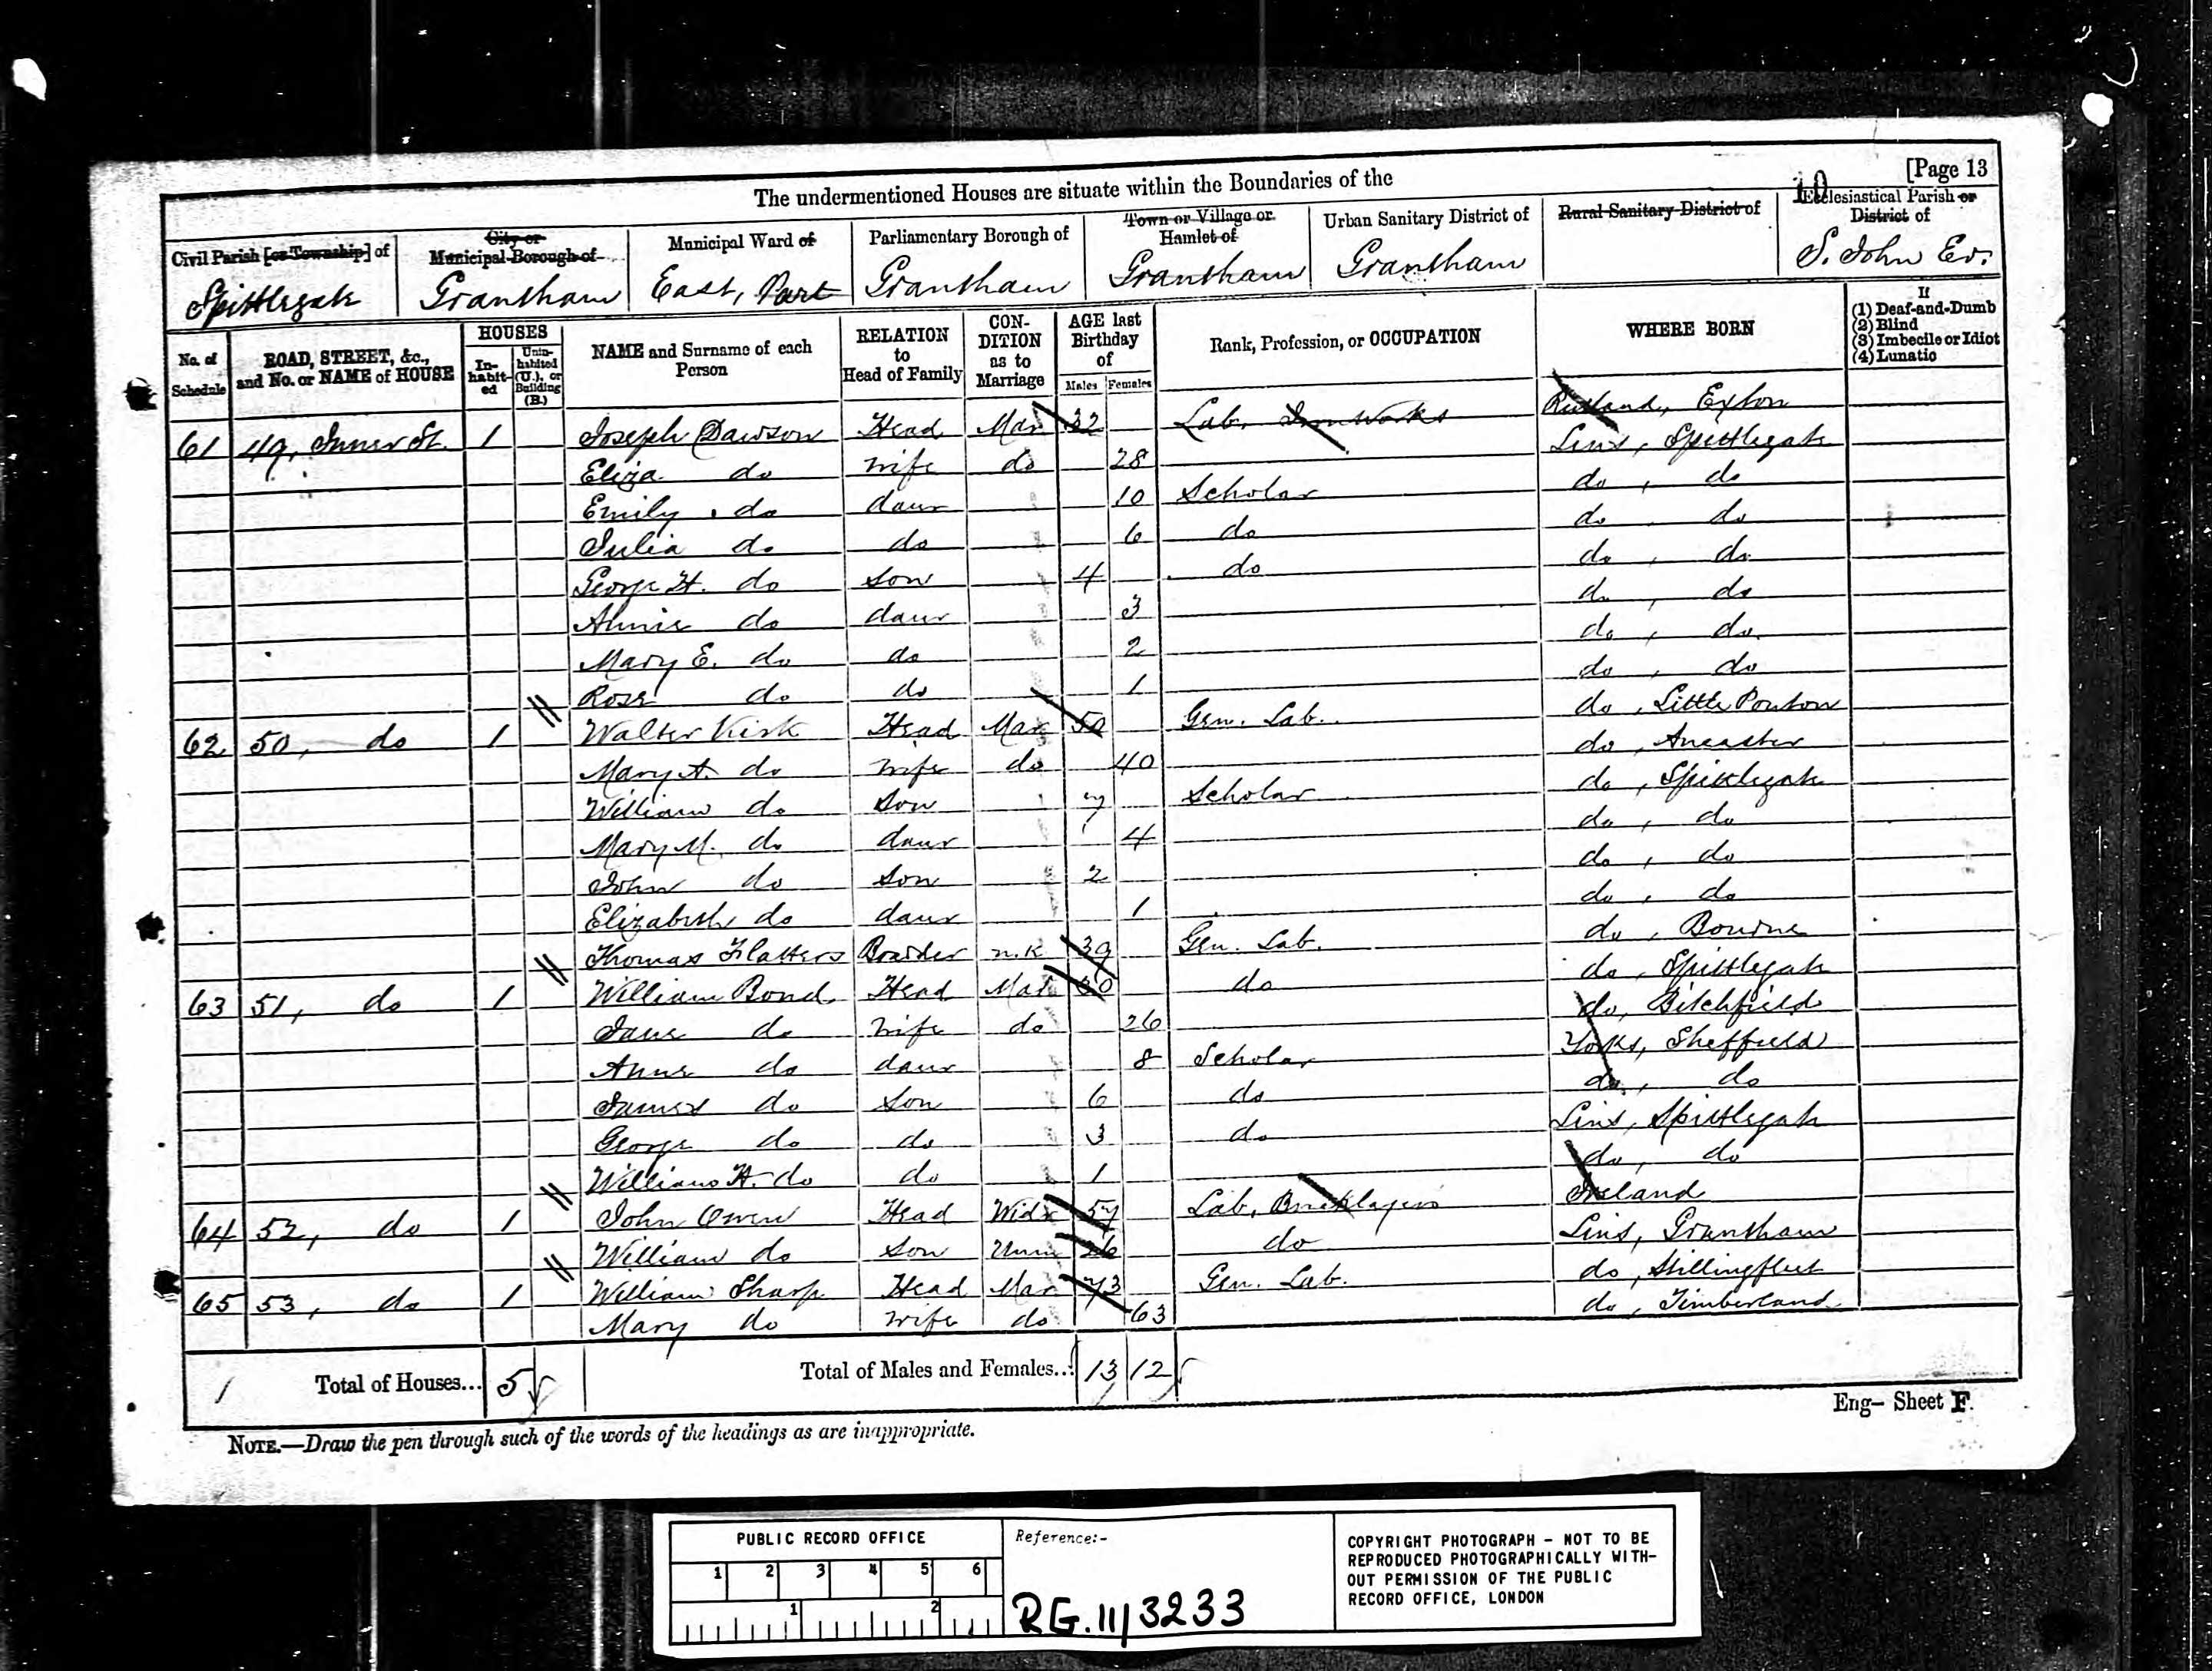 [Page 13
The undermentioned Houses are situate within the Boundaries of the
Civil Parish [or Township] of
City or Municipal Borough of
Municipal Ward of
Parliamentary Borough of
Town or Village or Hamlet of
Urban Sanitary District of
Rural Sanitary District of
10 Ecclesiastical Parish or District of
Spittlegate
Grantham
East, Part
Grantham
Grantham
Grantham
S. John Ev.
No. of Schedule
ROAD, STREET, &c., and No. or NAME of HOUSE
HOUSES
In-habit-ed
Unin-habited (U.), or Building (B.)
NAME and Surname of each Person
RELATION to Head of Family
CON-DITION as to Marriage
AGE last Birthday of
Males Females
Rank, Profession, or OCCUPATION
WHERE BORN
If
(1) Deaf-and-Dumb
(2) Blind
(3) Imbecile or Idiot
(4) Lunatic
61 49, Inner St. 1 Joseph Dawson Head Mar 32 Lab. Iron Works Rutland, Exton
Eliza do Wife do 28 Lins, Spittlegate
Emily do daur 10 Scholar do, do
Julia do do 6 do do, do
George H. do Son 4 do do, do
Annie do daur 3 do, do
Mary E. do do 2 do, do
Rose do do 1 do, do
62 50, do 1 Walter Kirk Head Mar 50 Gen. Lab. do, Little Ponton
Mary A. do Wife do 40 do, Ancaster
William do Son 7 Scholar do, Spittlegate
Mary M. do daur 4 do, do
John do Son 2 do, do
Elizabeth do daur 1 do, do
Thomas Flatters Boarder n.k 39 Gen. Lab. do, Bourne
63 51, do 1 William Bond Head Mar 30 do do, Spittlegate
Jane do Wife do 26 do, Bitchfield
Anne do daur 8 Scholar Yorks, Sheffield
James do Son 6 do do, do
George do do 3 do Lins, Spittlegate
William H. do do 1 do, do
64 52, do 1 John Owen Head Widr 57 Lab, Bricklayers Ireland
William do Son Unm 26 do Lins, Grantham
65 53, do 1 William Sharp Head Mar 73 Gen. Lab. do, Stillingfleet
Mary do Wife do 63 do, Timberland
1 Total of Houses... 5 Total of Males and Females... 13 12
Eng- Sheet F.
NOTE.—Draw the pen through such of the words of the headings as are inappropriate.
PUBLIC RECORD OFFICE
1 2 3 4 5 6
1 2
Reference:-
RG.11/3233
COPYRIGHT PHOTOGRAPH - NOT TO BE
REPRODUCED PHOTOGRAPHICALLY WITH-
OUT PERMISSION OF THE PUBLIC
RECORD OFFICE, LONDON